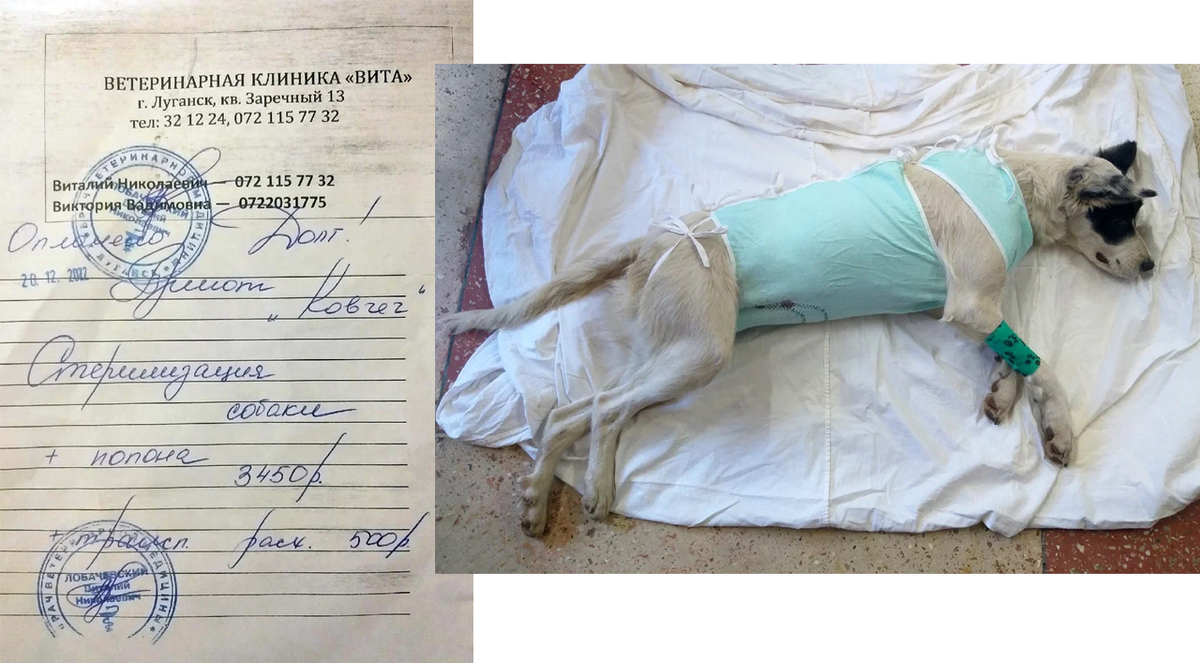 ВЕТЕРИНАРНАЯ КЛИНИКА «ВИТА»
г. Луганск, кв. Заречный 13
тел: 32 12 24, 072 115 77 32
Виталий Николаевич — 072 115 77 32
Виктория Вадимовна — 0722031775
Оплачено Долг!
20.12.2022
Приют
„Ковчег"
Стерилизация
собаки
+ попона
3450р.
+ трансп. расх. 500р
ВРАЧ ВЕТЕРИНАРНОЙ МЕДИЦИНЫ
ЛОБАЧЕВСКИЙ
Виталий
Николаевич